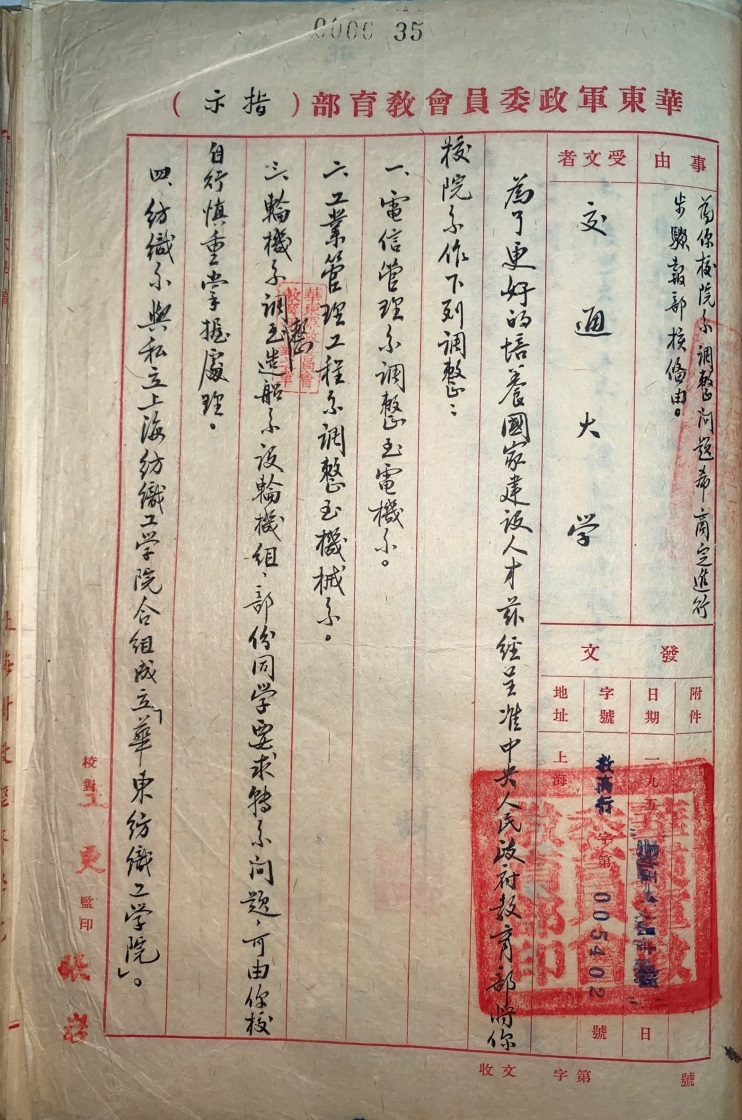 0000 35
華東軍政委員會教育部（指示）
事由
為你校院系調整问題希商定進行
步驟報部核俻由。
受文者
交通大学
發文
附件
日期
一九五
日
字號
教高行字第005402號
地址
上海
為了更好的培養國家建设人才茲經呈准中央人民政府教育部將你
校院系作下列調整：
一、電信管理系調整至電機系。
二、工業管理工程系調整至機械系。
三、輪機系調整至造船系设輪機組，部份同学要求轉系问题，可由你校
自行慎重掌握處理。
四、紡織系與私立上海紡織工学院合组成立「華東紡織工学院」。
校對
監印
收文 字第 號